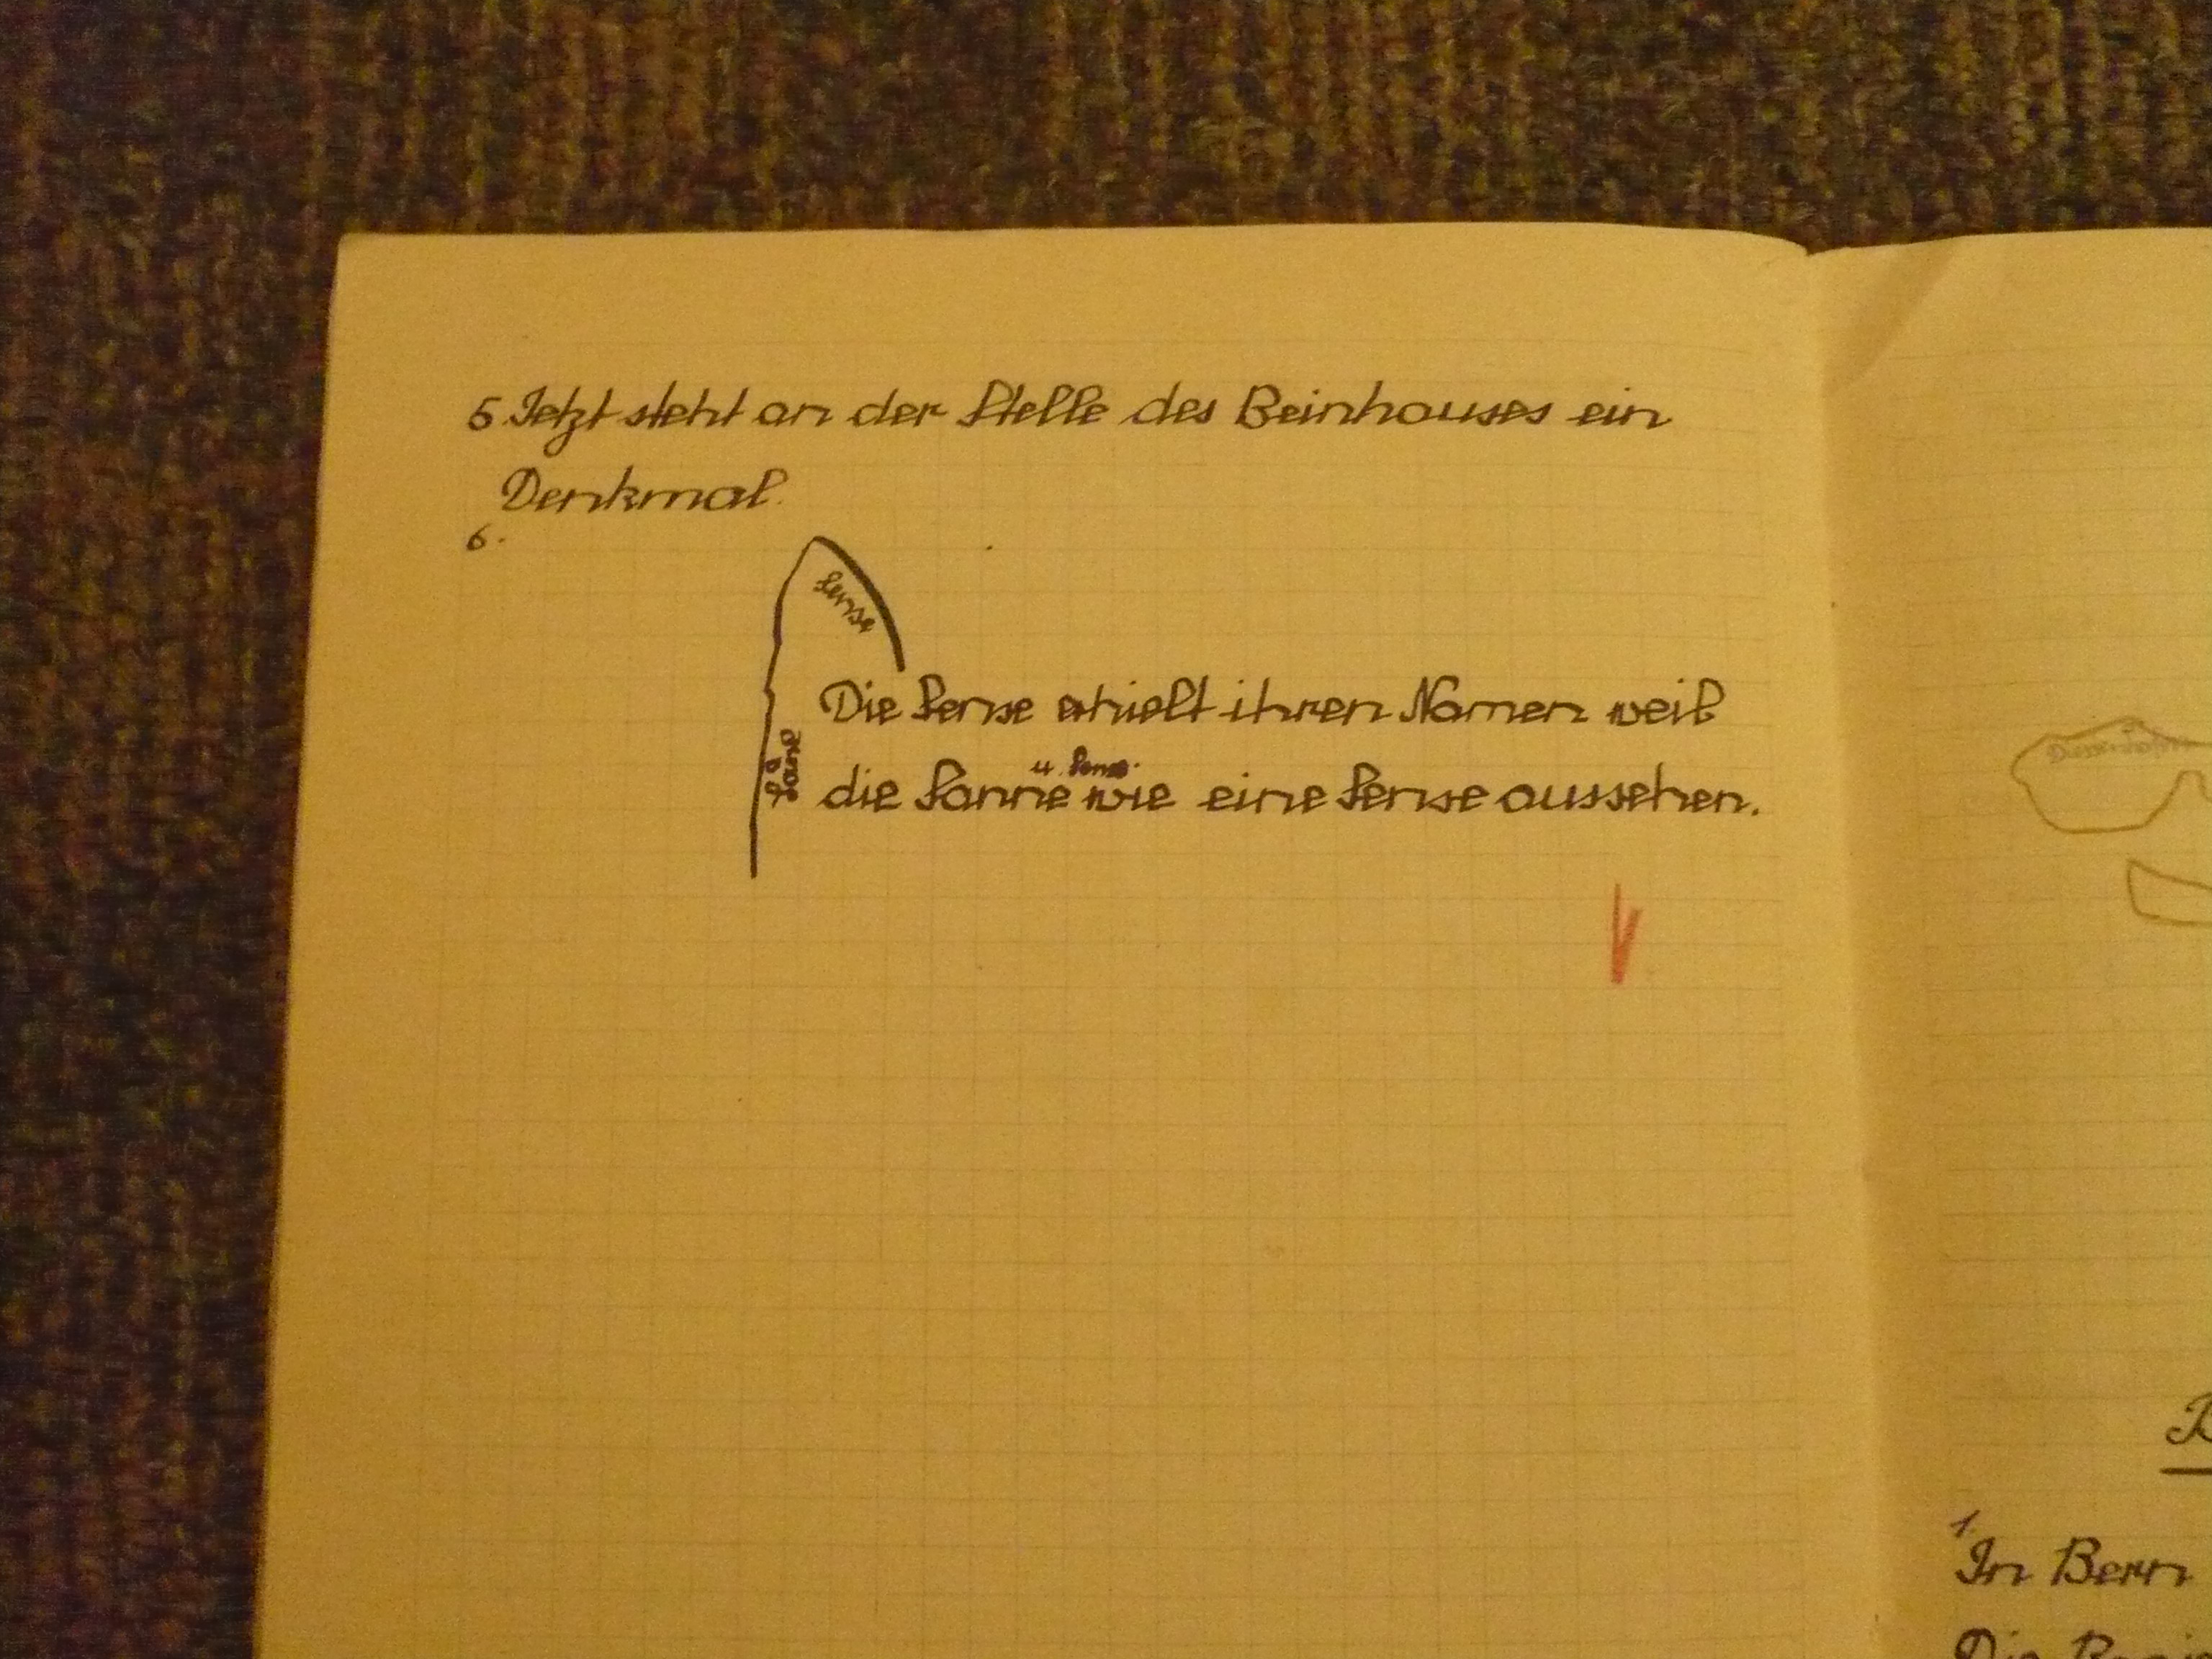 5. Jetzt steht an der Stelle des Beinhauses ein
Denkmal.
6.
Sense
Die Sense erhielt ihren Namen weil
u. Sense
die Sanne wie eine Sense aussehen.
1.
In Bern
Die